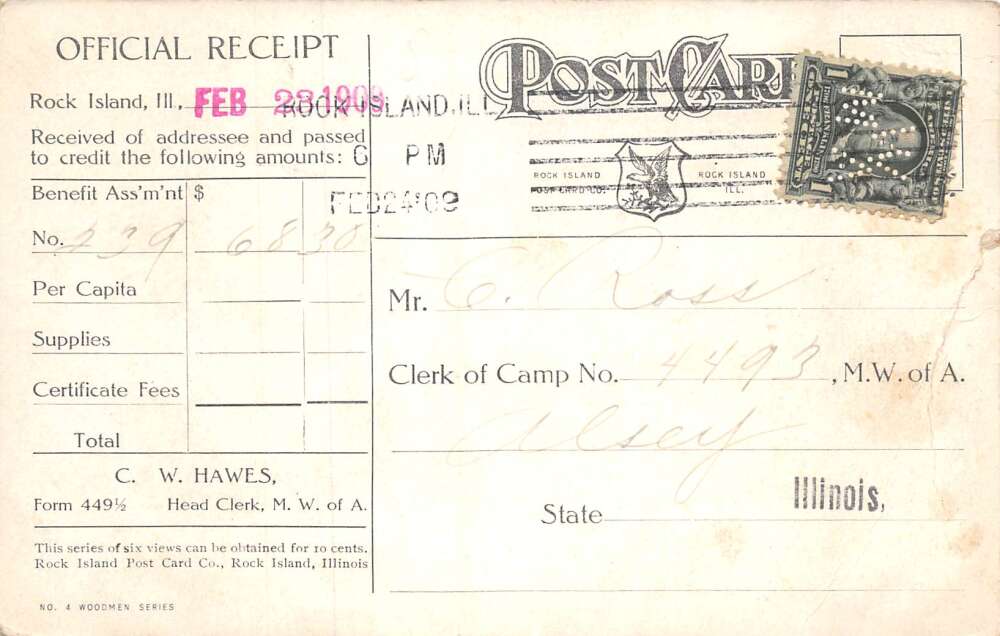 OFFICIAL RECEIPT
Rock Island, Ill., FEB 23 1909
Received of addressee and passed
to credit the following amounts:
Benefit Ass'm'nt $
No. 239 68 30
Per Capita
Supplies
Certificate Fees
Total
C. W. HAWES,
Form 449½ Head Clerk, M. W. of A.
This series of six views can be obtained for 10 cents.
Rock Island Post Card Co., Rock Island, Illinois
NO. 4 WOODMEN SERIES
POST CARD
ROCK ISLAND, ILL
6 PM
FEB 24 '09
ROCK ISLAND
POST CARD CO.
ROCK ISLAND
ILL.
1 1
Mr. C. Ross
Clerk of Camp No. 4493, M.W. of A.
Alsey
State Illinois,